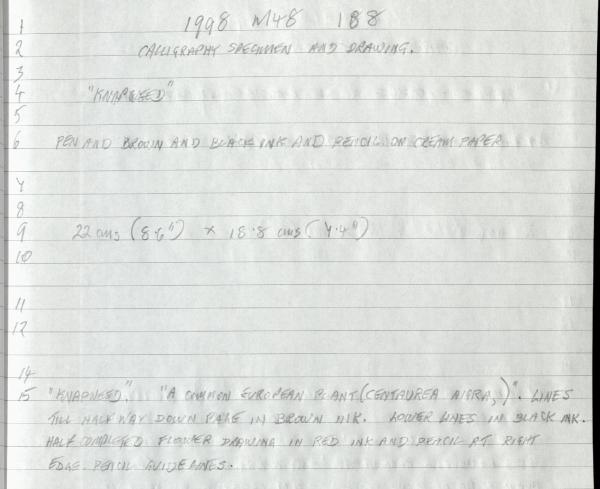 1 1998 M48 188
2 CALLIGRAPHY SPECIMEN AND DRAWING.
3
4 "KNAPWEED"
5
6 PEN AND BROWN AND BLACK INK AND PENCIL ON CREAM PAPER
7
8
9 22 cms (8.6") x 18.8 cms (7.4")
10
11
12
14
15 "KNAPWEED." "A COMMON EUROPEAN PLANT (CENTAUREA NIGRA,)". LINES
TILL HALF WAY DOWN PAGE IN BROWN INK. LOWER LINES IN BLACK INK.
HALF COMPLETED FLOWER DRAWING IN RED INK AND PENCIL AT RIGHT
EDGE. PENCIL GUIDELINES.